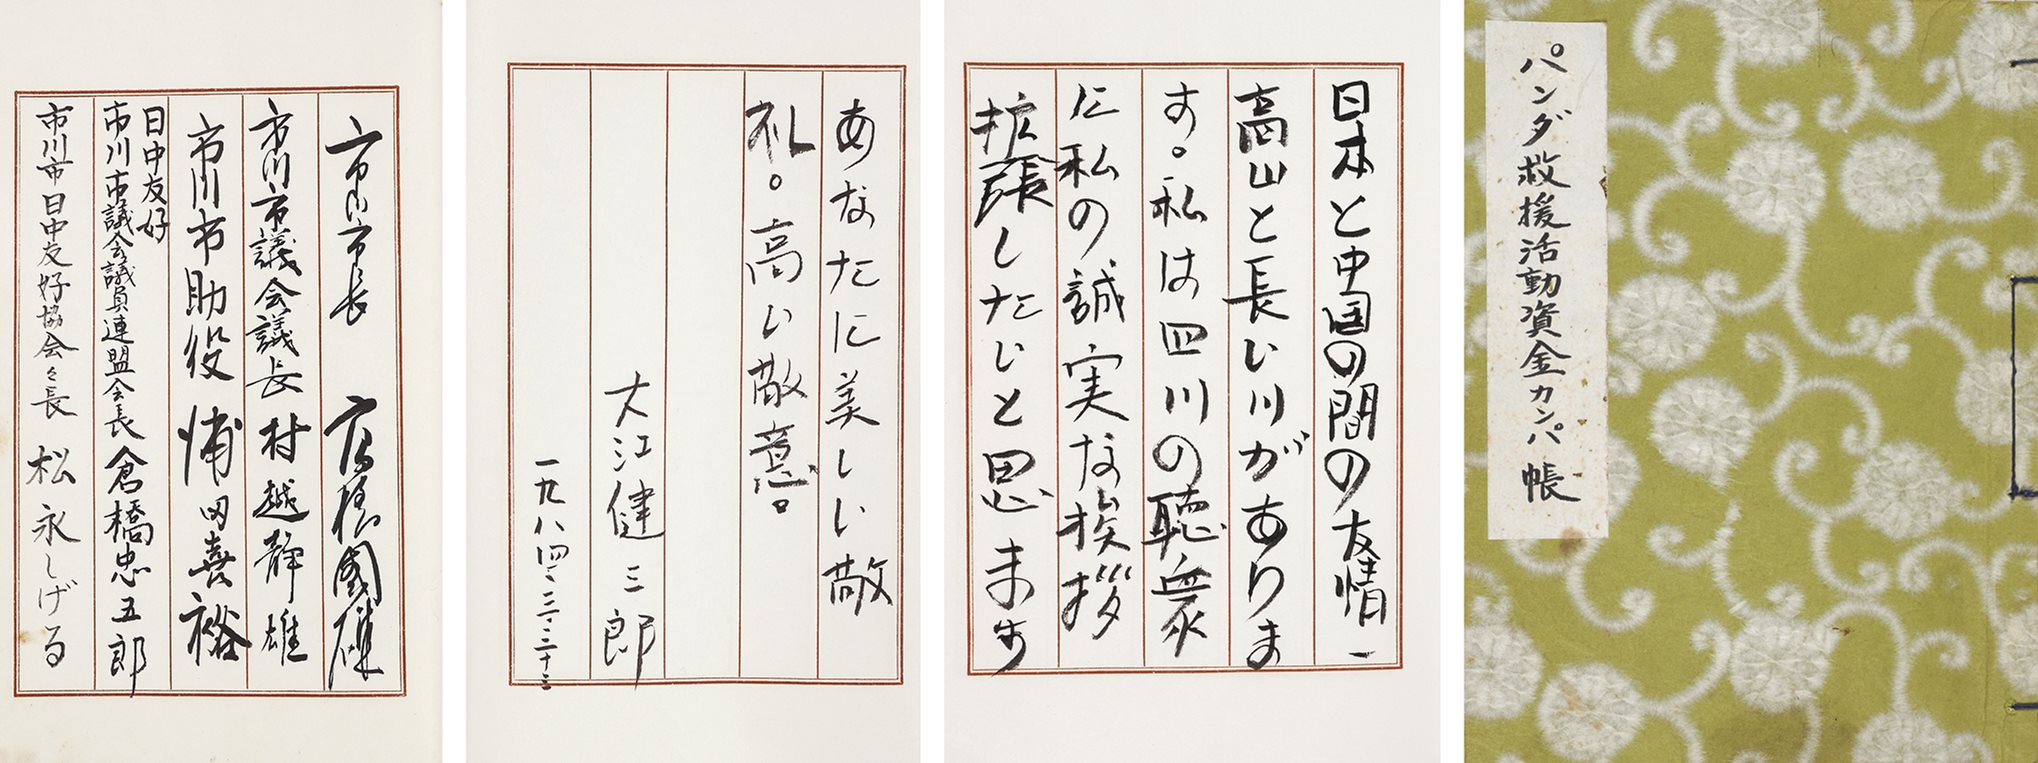 パンダ救援活動資金カンパ帳
日本と中国の間の友情一
高山と長い川がありま
す。私は四川の聴衆
に私の誠実な挨拶
拡張したいと思います
あなたに美しい敬
礼。高い敬意。
大江健三郎
一九八四・三・二十三
市川市長 高橋國雄
市川市議会議長 村越静雄
市川市助役 浦田喜裕
日中友好
市川市議会議員連盟会長 倉橋忠五郎
市川市日中友好協会々長 松永しげる